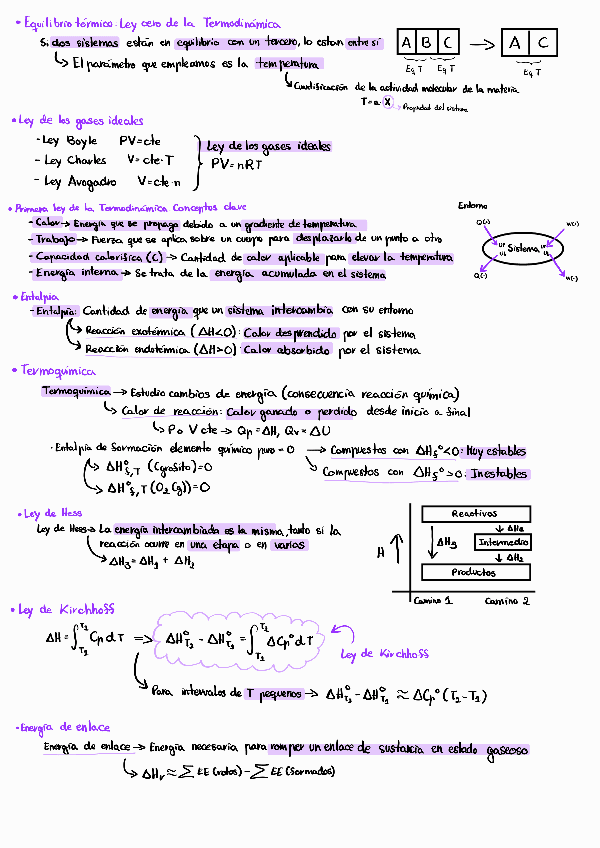 • Equilibrio térmico. Ley cero de la Termodinámica
Si dos sistemas están en equilibrio con un tercero, lo estan entre sí
A B C → A C
Eq T Eq T Eq T
↳ El parámetro que empleamos es la temperatura
↳ Cuantificación de la actividad molecular de la materia
T=a·X → Propiedad del sistema
• Ley de los gases ideales
- Ley Boyle PV=cte
- Ley Charles V=cte·T
- Ley Avogadro V=cte·n
Ley de los gases ideales
PV=nRT
• Primera ley de la Termodinámica Conceptos clave
- Calor → Energía que se propaga debido a un gradiente de temperatura
- Trabajo → Fuerza que se aplica sobre un cuerpo para desplazarlo de un punto a otro
- Capacidad calorífica (C) → Cantidad de calor aplicable para elevar la temperatura
- Energía interna → Se trata de la energía acumulada en el sistema
Entorno
Sistema
• Entalpia
- Entalpia: Cantidad de energía que un sistema intercambia con su entorno
↳ Reacción exotérmica (ΔH<0): Calor desprendido por el sistema
↳ Reacción endotérmica (ΔH>0): Calor absorbido por el sistema
• Termoquímica
Termoquimica → Estudio cambios de energía (consecuencia reacción química)
↳ Calor de reacción: Calor ganado o perdido desde inicio a final
↳ P o V cte → Qp = ΔH, Qv = ΔU
· Entalpia de formación elemento químico puro = 0 → Compuestos con ΔHf°<0: Muy estables
↳ ΔH°f,T (Cgrafito)=0
↳ Compuestos con ΔHf°>0: Inestables
↳ ΔH°f,T (O2(g))=0
• Ley de Hess
Ley de Hess → La energía intercambiada es la misma, tanto si la
reacción ocurre en una etapa o en varias
↳ ΔH3 = ΔH1 + ΔH2
H
Reactivos
ΔH3
Intermedio
↓ ΔH2
Productos
Camino 1 Camino 2
• Ley de Kirchhoff
ΔH = ∫T1T2 Cp dT ⇒ ΔH°T2 - ΔH°T1 = ∫T1T2 ΔCp° dT
Ley de Kirchhoff
↳ Para intervalos de T pequenos → ΔH°T2 - ΔH°T1 ≈ ΔCp° (T2-T1)
• Energía de enlace
Energía de enlace → Energía necesaria para romper un enlace de sustancia en estado gaseoso
↳ ΔHr ≈ ∑ EE (rotos) - ∑ EE (formados)